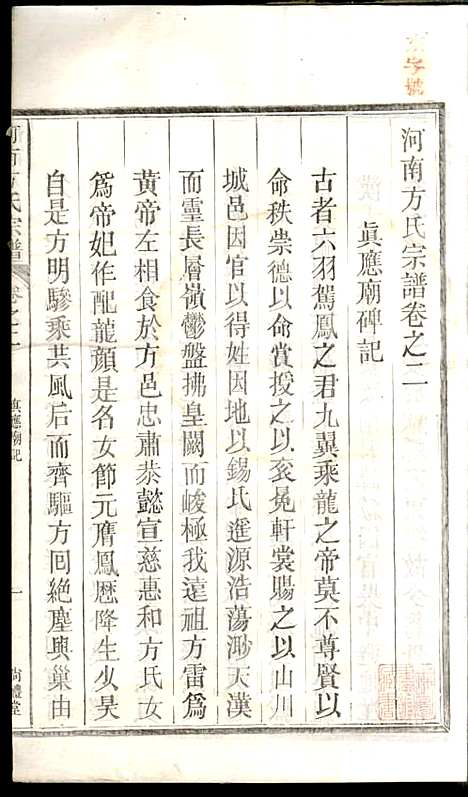 河南方氏宗譜卷之二
眞應廟碑記
古者六羽駕鳳之君九翼乘龍之帝莫不尊賢以
命秩崇德以命賞授之以袞冕軒裳賜之以山川
城邑因官以得姓因地以錫氏進源浩蕩渺天漢
而靈長層嶺鬱盤拂皇闕而峻極我遠祖方雷爲
黃帝左相食於方邑忠肅恭懿宣慈惠和方氏女
爲帝妃作配龍顏是名女節元膺鳳曆降生少昊
自是方明驂乘共風后而齊驅方回絶塵與巢由
河南方氏宗譜
卷之二
眞應廟記
一
尚禮堂
字號